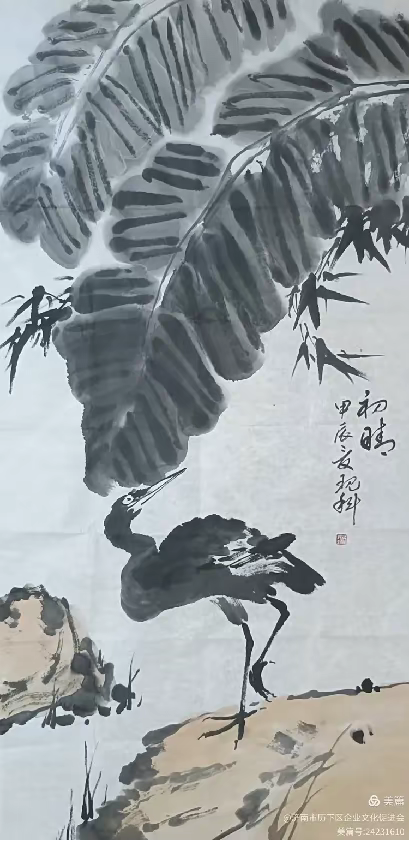 初晴
甲辰夏现科
美篇
@济南市历下区企业文化促进会
美篇号:24231610